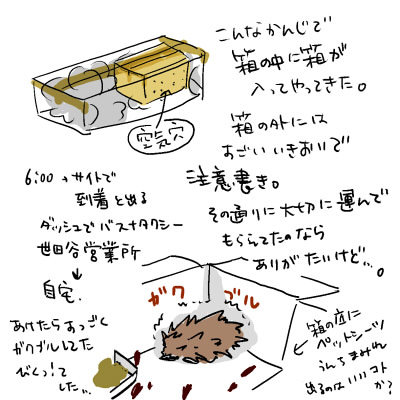 こんなかんじで
箱の中に箱が
入ってやってきた。
空気穴
箱の外には
すごいいきおいで
注意書き。
その通りに大切に運んで
もらってたのなら
ありがたいけど…。
6:00→サイトで
到着と出る
ダッシュでバスナタクシー
世田谷営業所
↓
自宅.
あけたらすっごく
ガクブルしてた
びくっ!て
した…
ガク
ブル
箱の底に
ペットシーツ
うんちまみれ
出るのはいいコト
か?